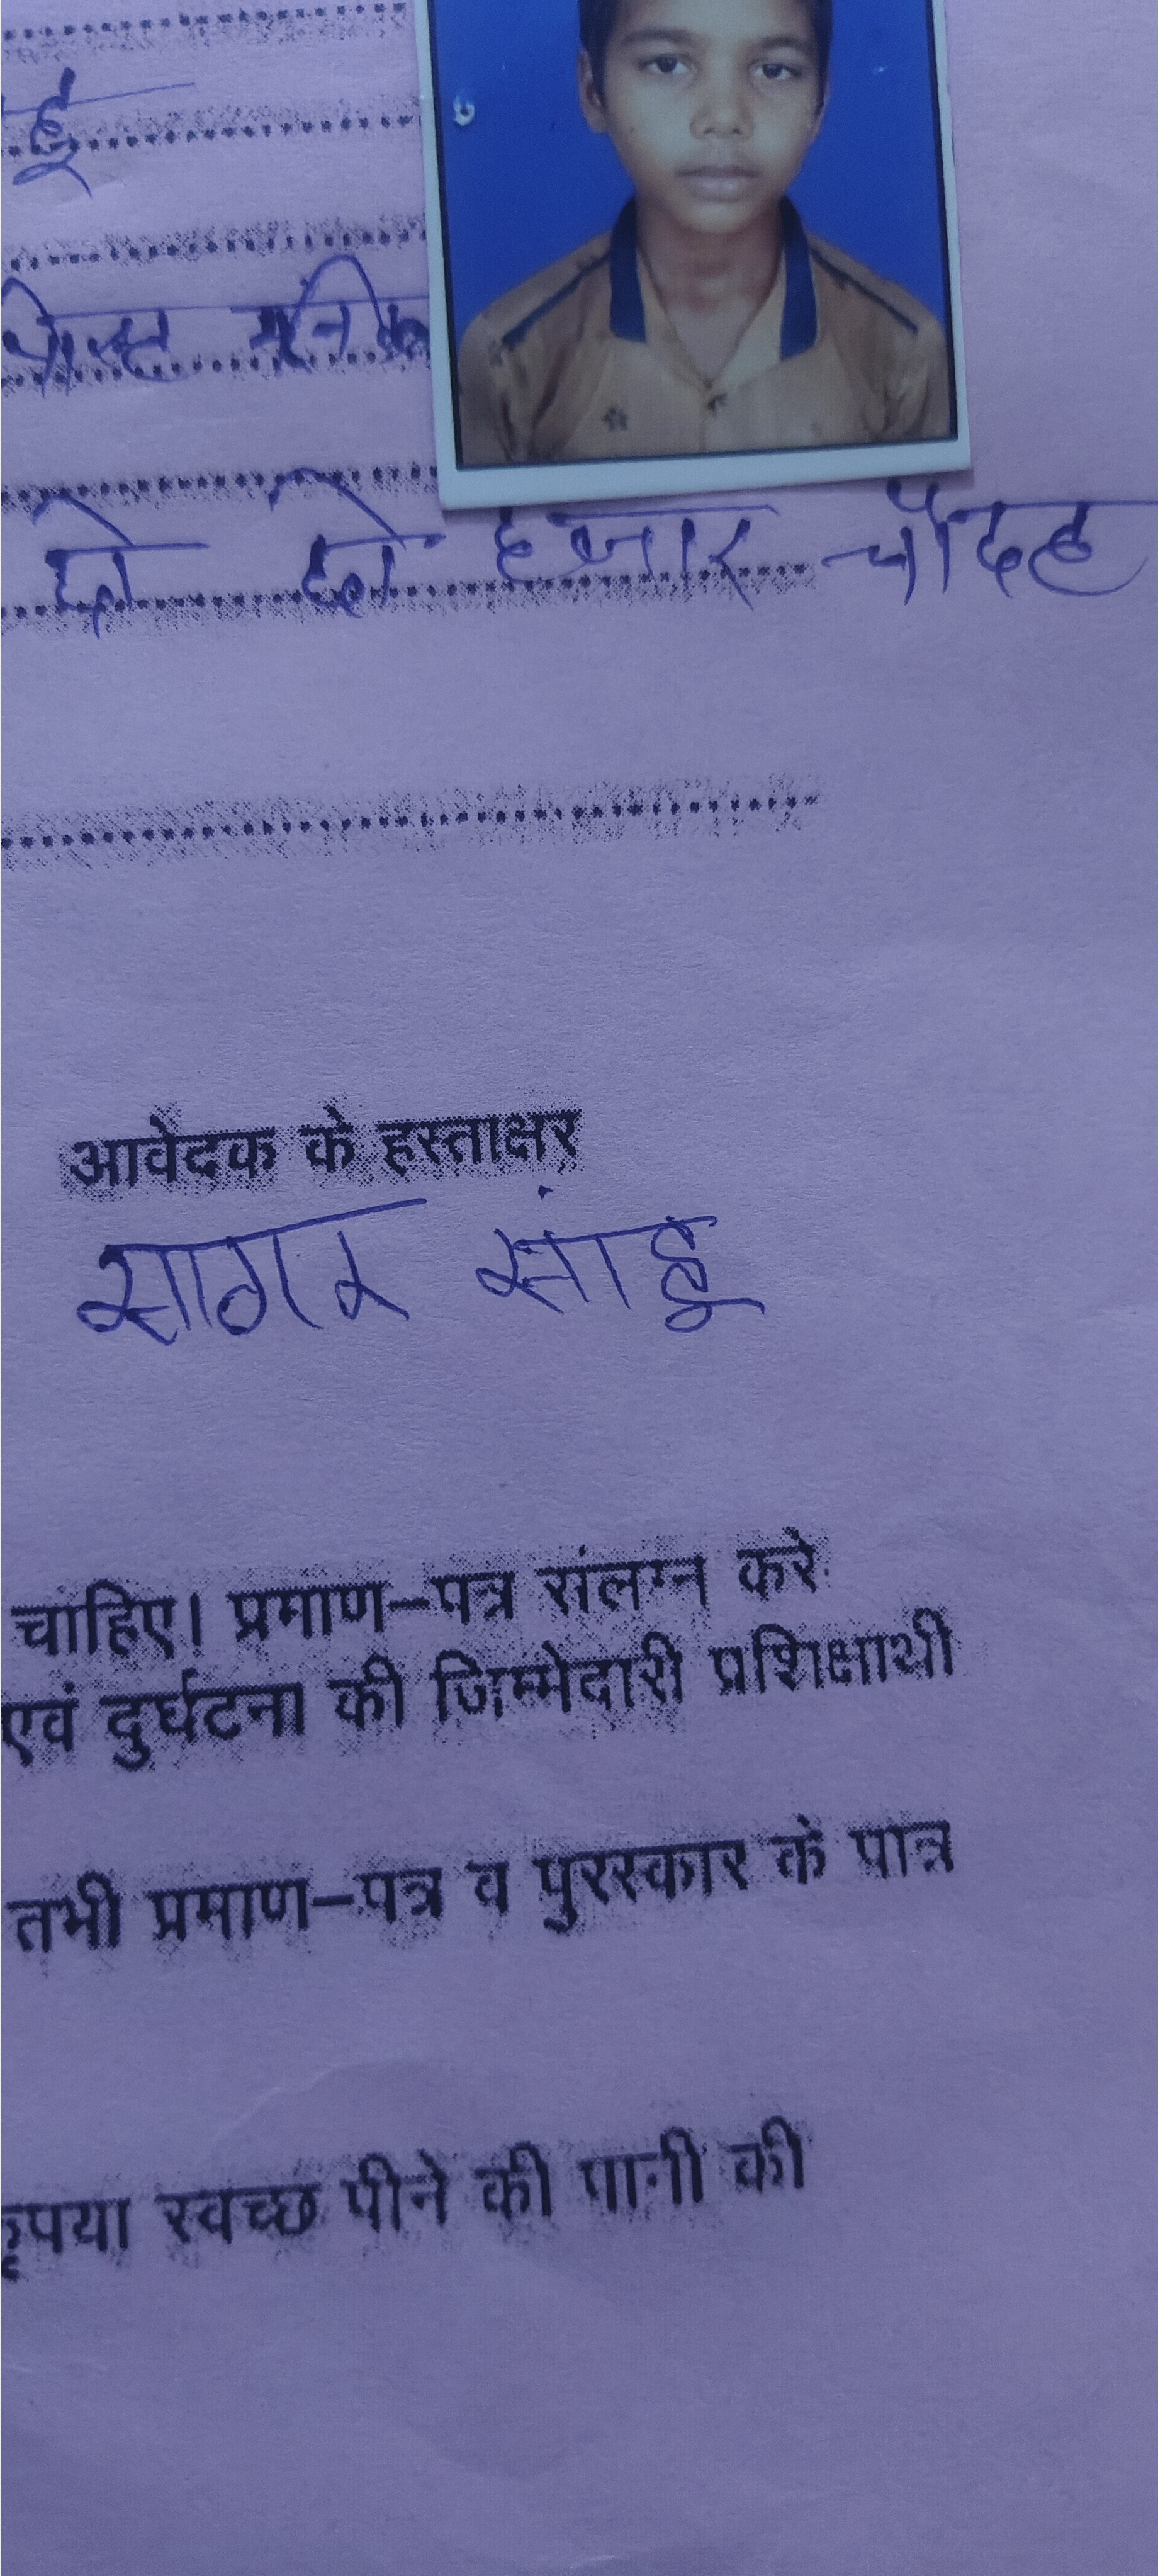 हू
दो दो हजार चौदह
आवेदक के हस्ताक्षर
सागर सांहू
चाहिए। प्रमाण–पत्र संलग्न करे
एवं दुर्घटना की जिम्मेदारी प्रशिक्षार्थी
तभी प्रमाण–पत्र व पुरस्कार के पात्र
कृपया स्वच्छ पीने की पानी की